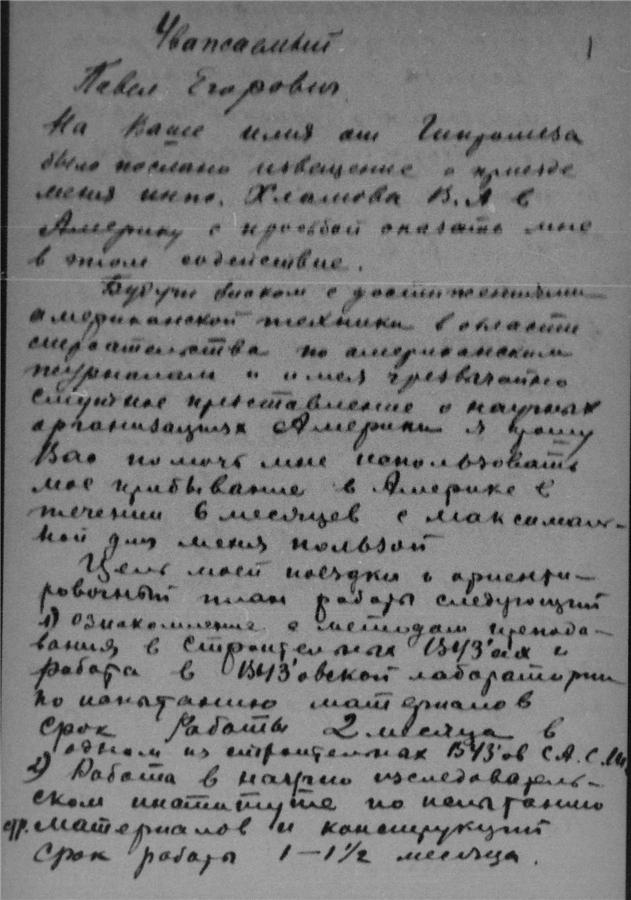 1
Уважаемый
Павел Егорович
На Ваше имя от Гипромеза
было послано извещение о приезде
меня инж. Хламова В.А в
Америку с просьбой оказать мне
в этом содействие.
Будучи с достижениями
американской техники в области
строительства по американским
журналам и имея чрезвычайно
смутное представление о научных
организациях Америки я прошу
Вас помочь мне использовать
мое прибывание в Америке в
течении 6 месяцев с максималь-
ной для меня пользой
Цель моей поездки и ориенти-
ровочный план работы следующий
1) ознакомление с методам препода-
вания в строительных ВУЗ'ах и
работа в ВУЗ'овской лаборатории
по испытанию материалов
срок работы 2 месяца в
одном из строительных ВУЗ'ов С.А.С.Ш.
2) Работа в научно исследователь-
ском институте по испытанию
стр. материалов и конструкций
срок работы 1-1½ месяца.